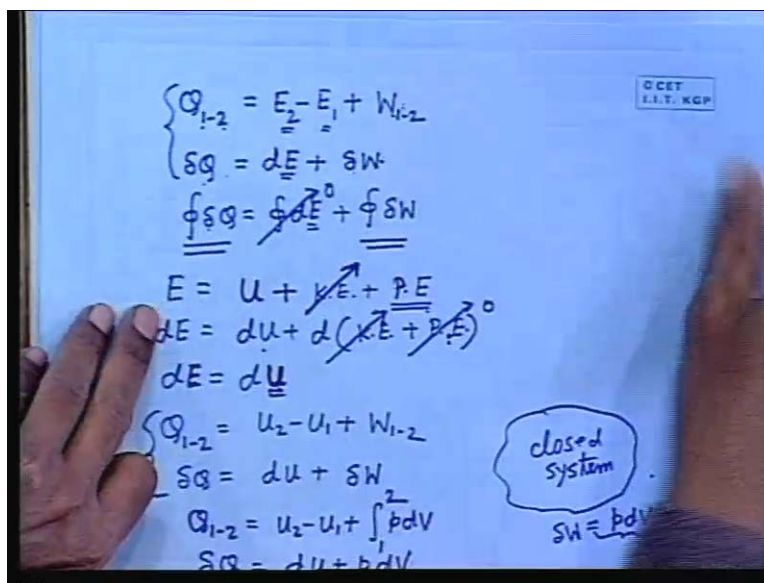 Q₁₋₂ = E₂ - E₁ + W₁₋₂
δQ = dE + δW
∮δQ = ∮dE⁰ + ∮δW
E = U + K.E. + P.E
dE = dU + d(K.E. + P.E.)⁰
dE = dU
Q₁₋₂ = U₂ - U₁ + W₁₋₂
δQ = dU + δW
Q₁₋₂ = U₂ - U₁ + ∫₁² pdV
δQ = dU + pdV
closed
system
δW = pdV
© CET
I.I.T. KGP